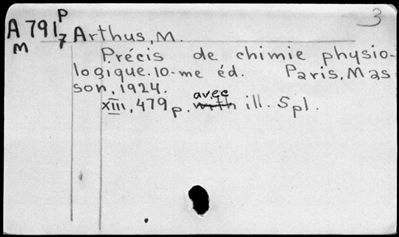 3
A 791 P
M 7
Arthus, M.
Précis de chimie physio-
logique. 10-me éd. Paris, Mas
son, 1924.
XIII, 479 p. with avec ill. 5 pl.